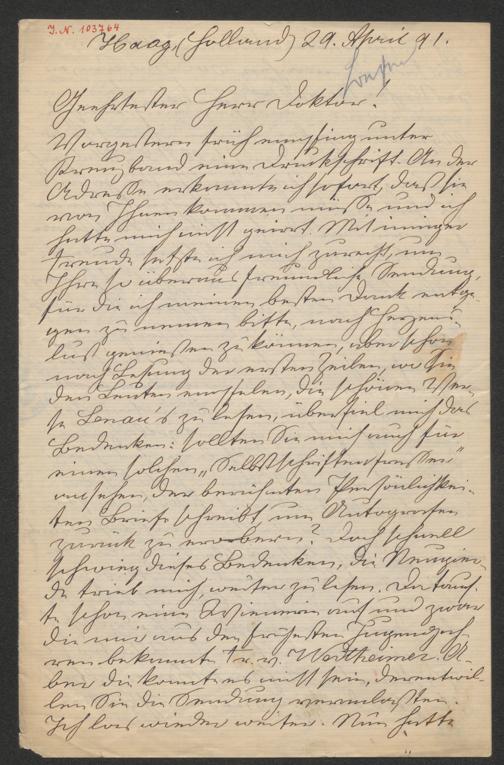 I. N. 103764
Haag, (Holland) 29. April 91.
Geehrtester Herr Doktor!
Vorgestern früh empfing unter
Kreuzband eine Druckschrift. An der
Adresse erkannte ich sofort, daß sie
von Ihnen kommen müsse und ich
hatte mich nicht geirrt. Mit inniger
Freude setzte ich mich zurecht, um
Ihre so überaus freundliche Sendung,
für die ich meinen besten Dank entge-
gen zu nehmen bitte, nach Herzens-
lust genießen zu können, aber schon
nach Lesung der ersten Zeilen, wo Sie
den Leuten empfehlen, die schönen Ver-
se Lenau's zu lesen, überfiel mich das
Bedenken: sollten Sie mich auch für
einen solchen „Selbstschriftenfresser"
ansehen, der berühmten Persönlichkei-
ten Briefe schreibt um Autografen
zurück zu erobern? Doch schnell
schwieg dieses Bedenken, die Neugier-
de trieb mich, weiter zu lesen. Da tauch-
te schon eine Wienerin auf und zwar
die mir aus den frühesten Jugendjah-
ren bekannte Fr. v. Wertheimer. A-
ber die konnte es nicht sein, derentwil-
len Sie die Sendung veranlaßten.
Ich las wieder weiter. Nun hatte